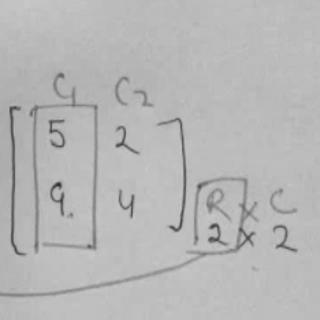 C1 C2
5 2
9. 4
R x C
2 x 2